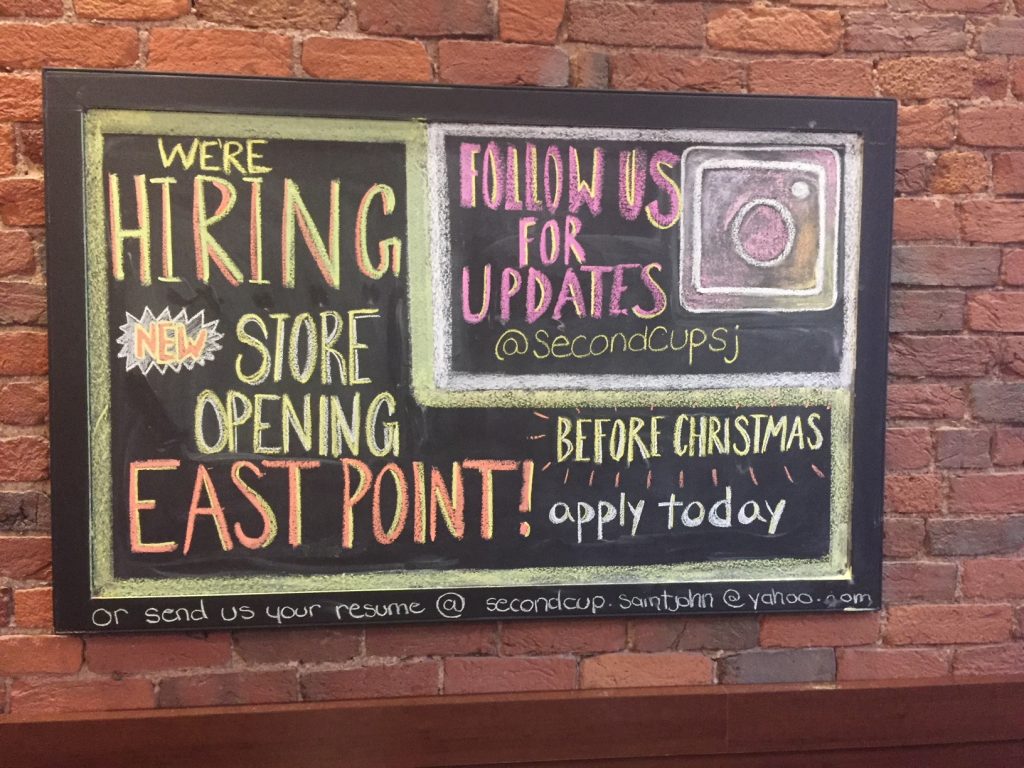 WE'RE
HIRING
NEW STORE
OPENING
EAST POINT!
BEFORE CHRISTMAS
apply today
FOLLOW US
FOR
UPDATES
@secondcupsj
or send us your resume @ secondcup.saintjohn@yahoo.com